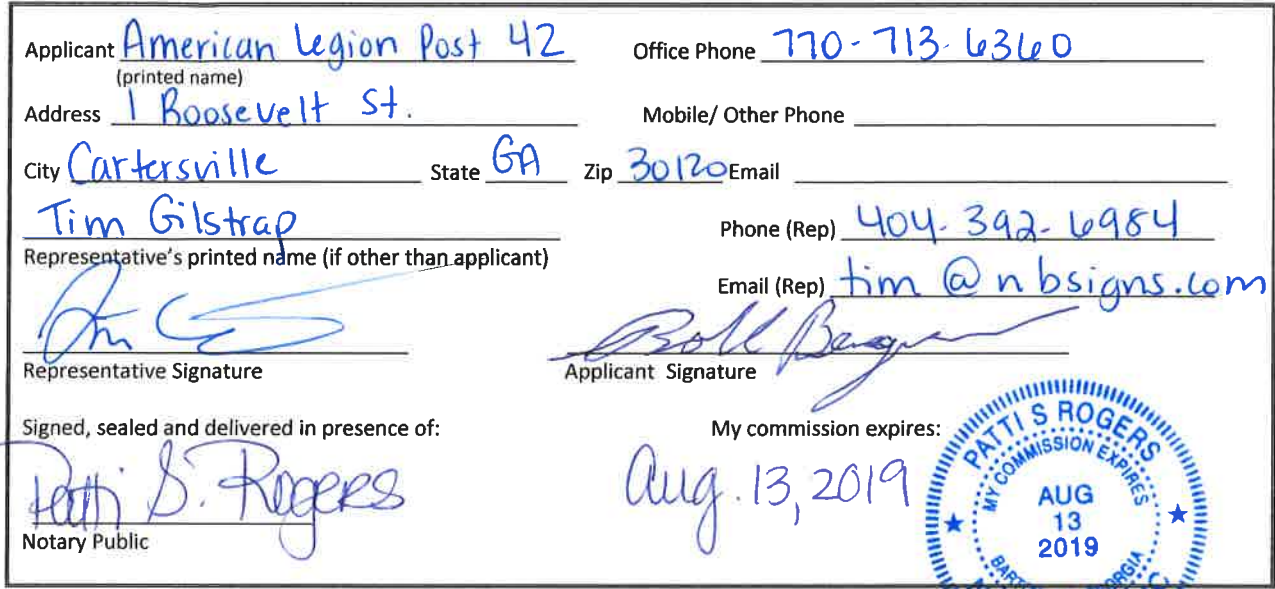 Applicant American Legion Post 42 Office Phone 770-713-6360
(printed name)
Address 1 Roosevelt St. Mobile/ Other Phone
City Cartersville State GA Zip 30120 Email
Tim Gilstrap Phone (Rep) 404-392-6984
Representative's printed name (if other than applicant)
Email (Rep) tim@nbsigns.com
Representative Signature Applicant Signature
Signed, sealed and delivered in presence of: My commission expires:
Patti S. Rogers Aug. 13, 2019
Notary Public
PATTI S ROGERS
MY COMMISSION EXPIRES
AUG
13
2019